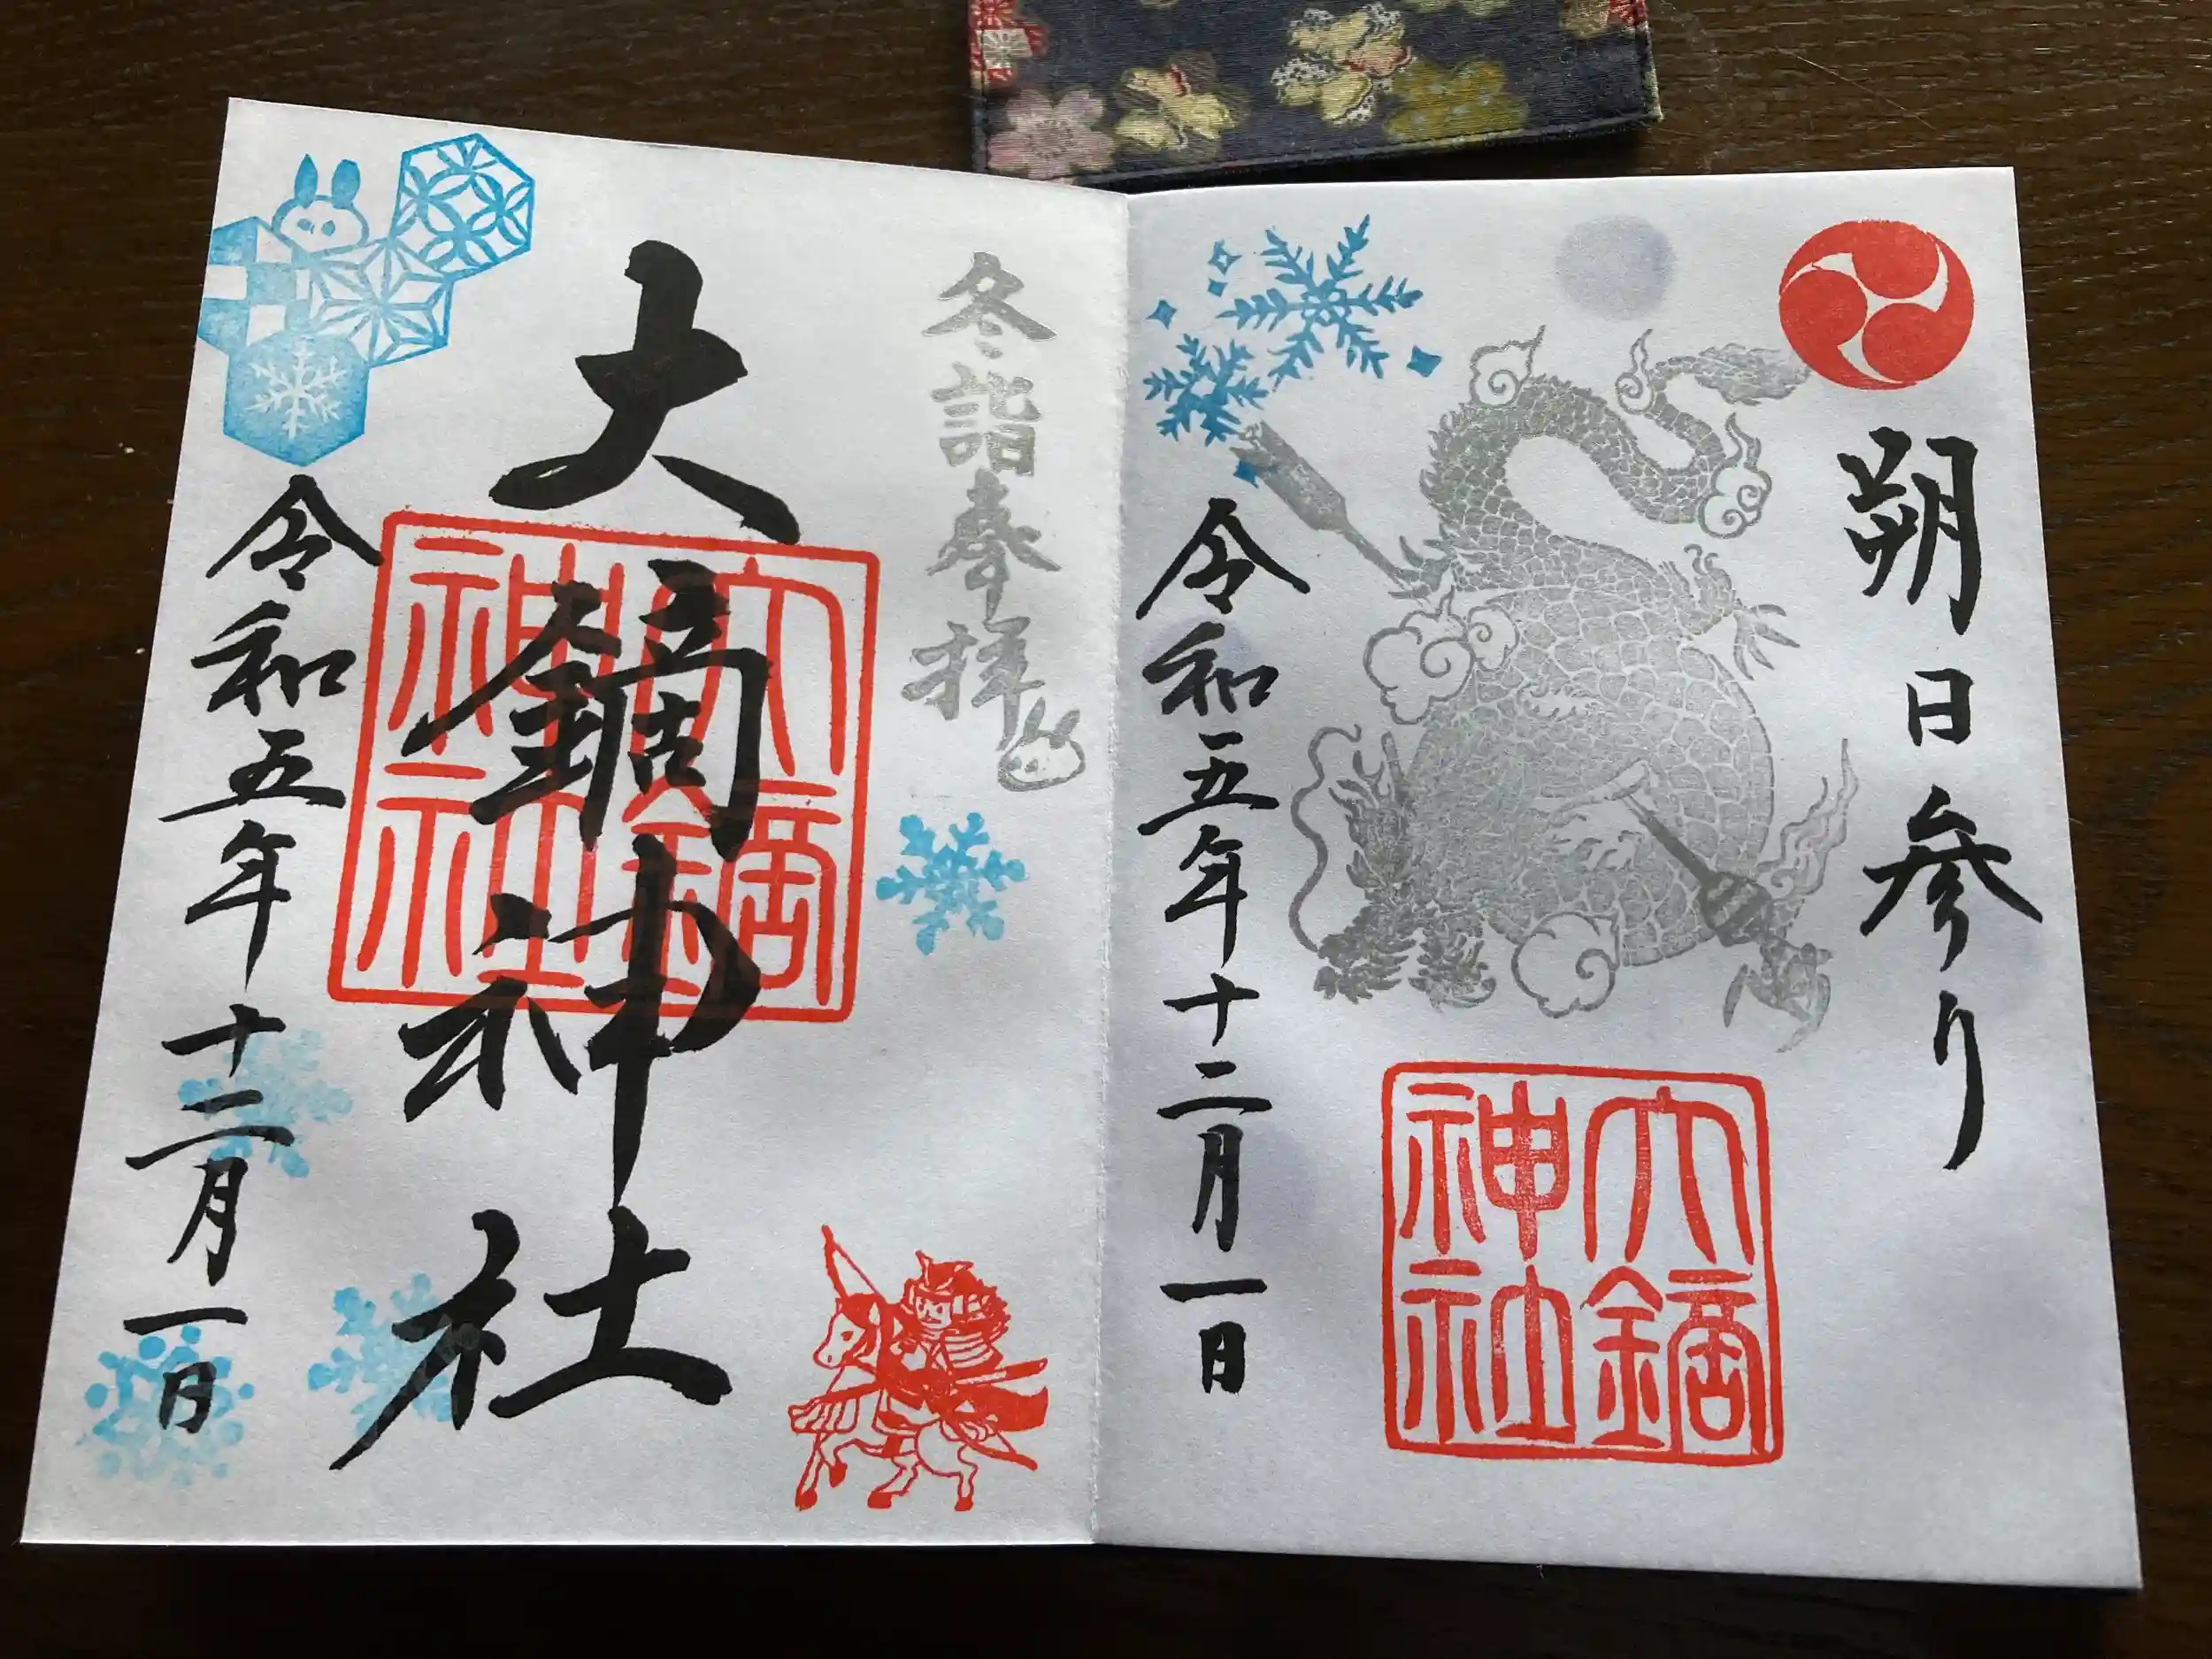 朔日参り
大鏑神社
令和五年十二月一日
冬詣奉拝
大鏑神社
大鏑神社
令和五年十二月一日